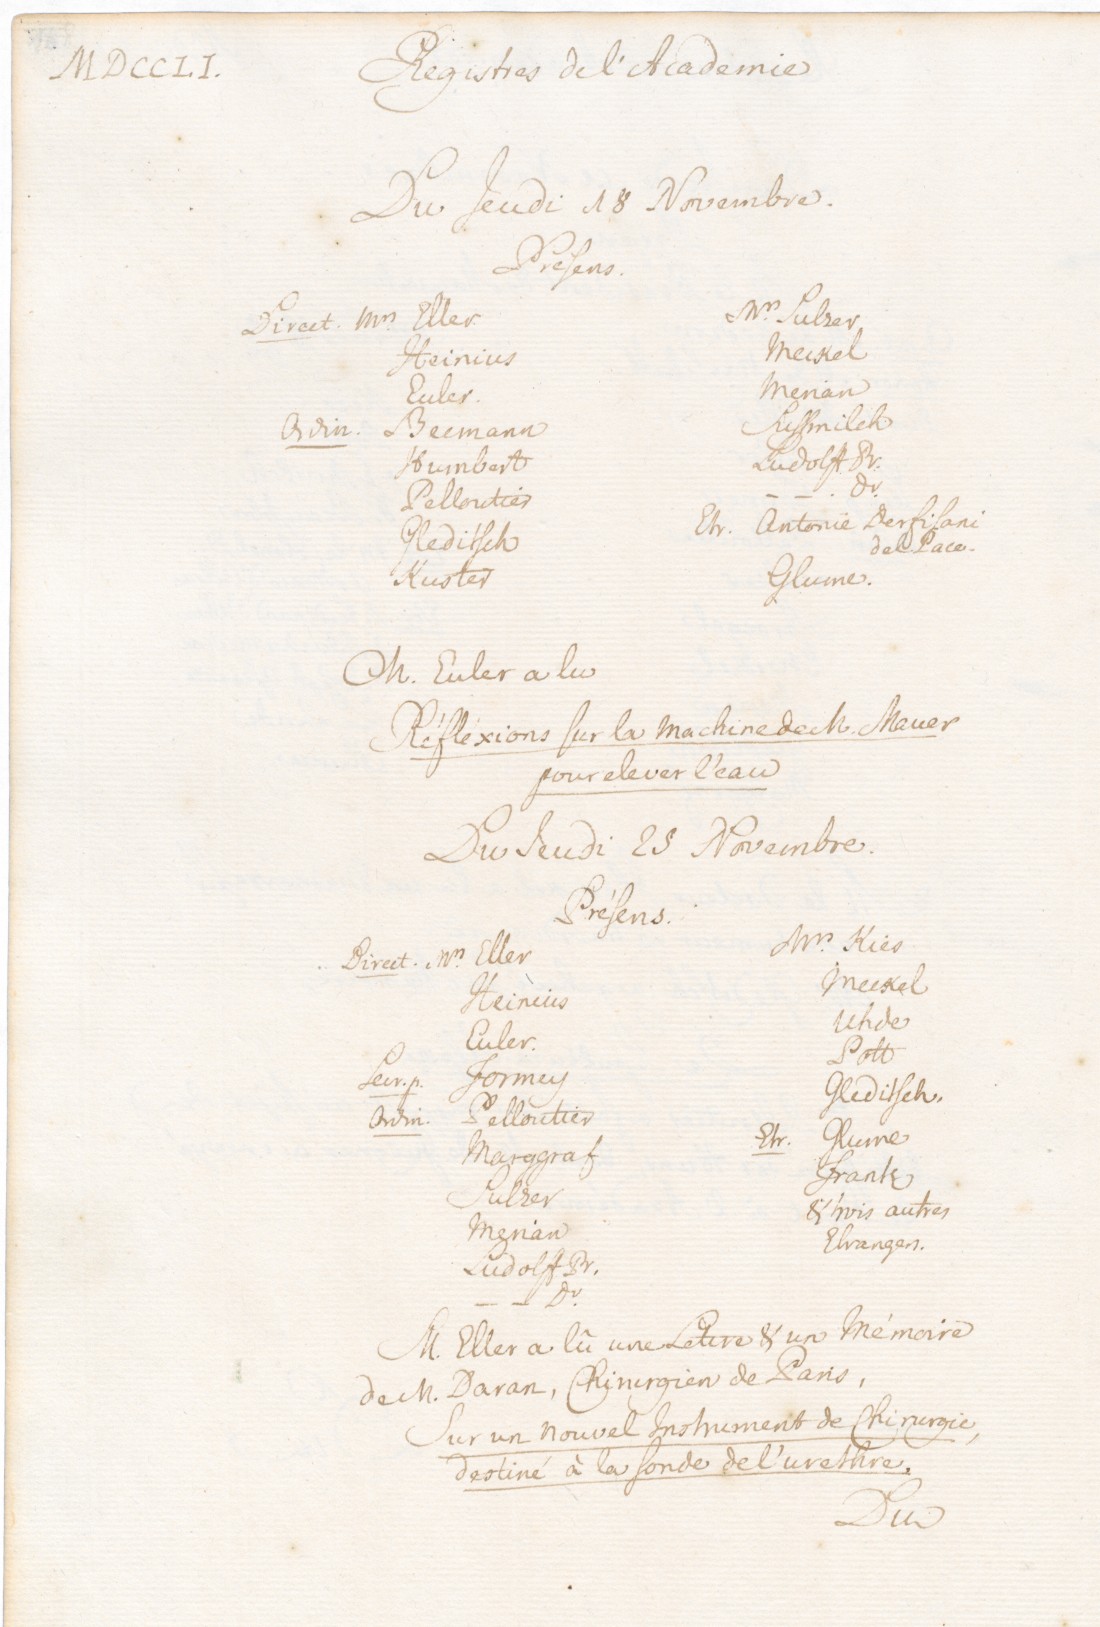 MDCCLI.
Registres de l'Academie
Du Jeudi 18 Novembre.
Présens.
Direct. Mrs Eller.
Heinius
Euler.
Ordin. Becmann
Humbert
Pelloutier
Gleditsch
Kuster
Mrs Sulzer
Meckel
Merian
Sussmilch
Ludolff Pr.
_ _ . Dr.
Etr. Antoine
del Pace.
Glume.
M. Euler a lu
Réfléxions sur la machine de M. Mauer
pour elever l'eau
Du Jeudi 25 Novembre.
Présens.
Direct. Mrs Eller
Heinius
Euler.
Secr. p. Formey
Ordin. Pelloutier
Marggraf
Sulzer
Merian
Ludolff Pr.
_ _ Dr.
Mrs Kies
Meckel
Uhde
Pott
Gleditsch.
Etr. Glume
Frantz
& trois autres
Etrangers.
M. Eller a lû une Lettre & un Mémoire
de M. Daran, Chirurgien de Paris,
Sur un nouvel Instrument de Chirurgie,
destiné à la sonde de l'urethre.
Du